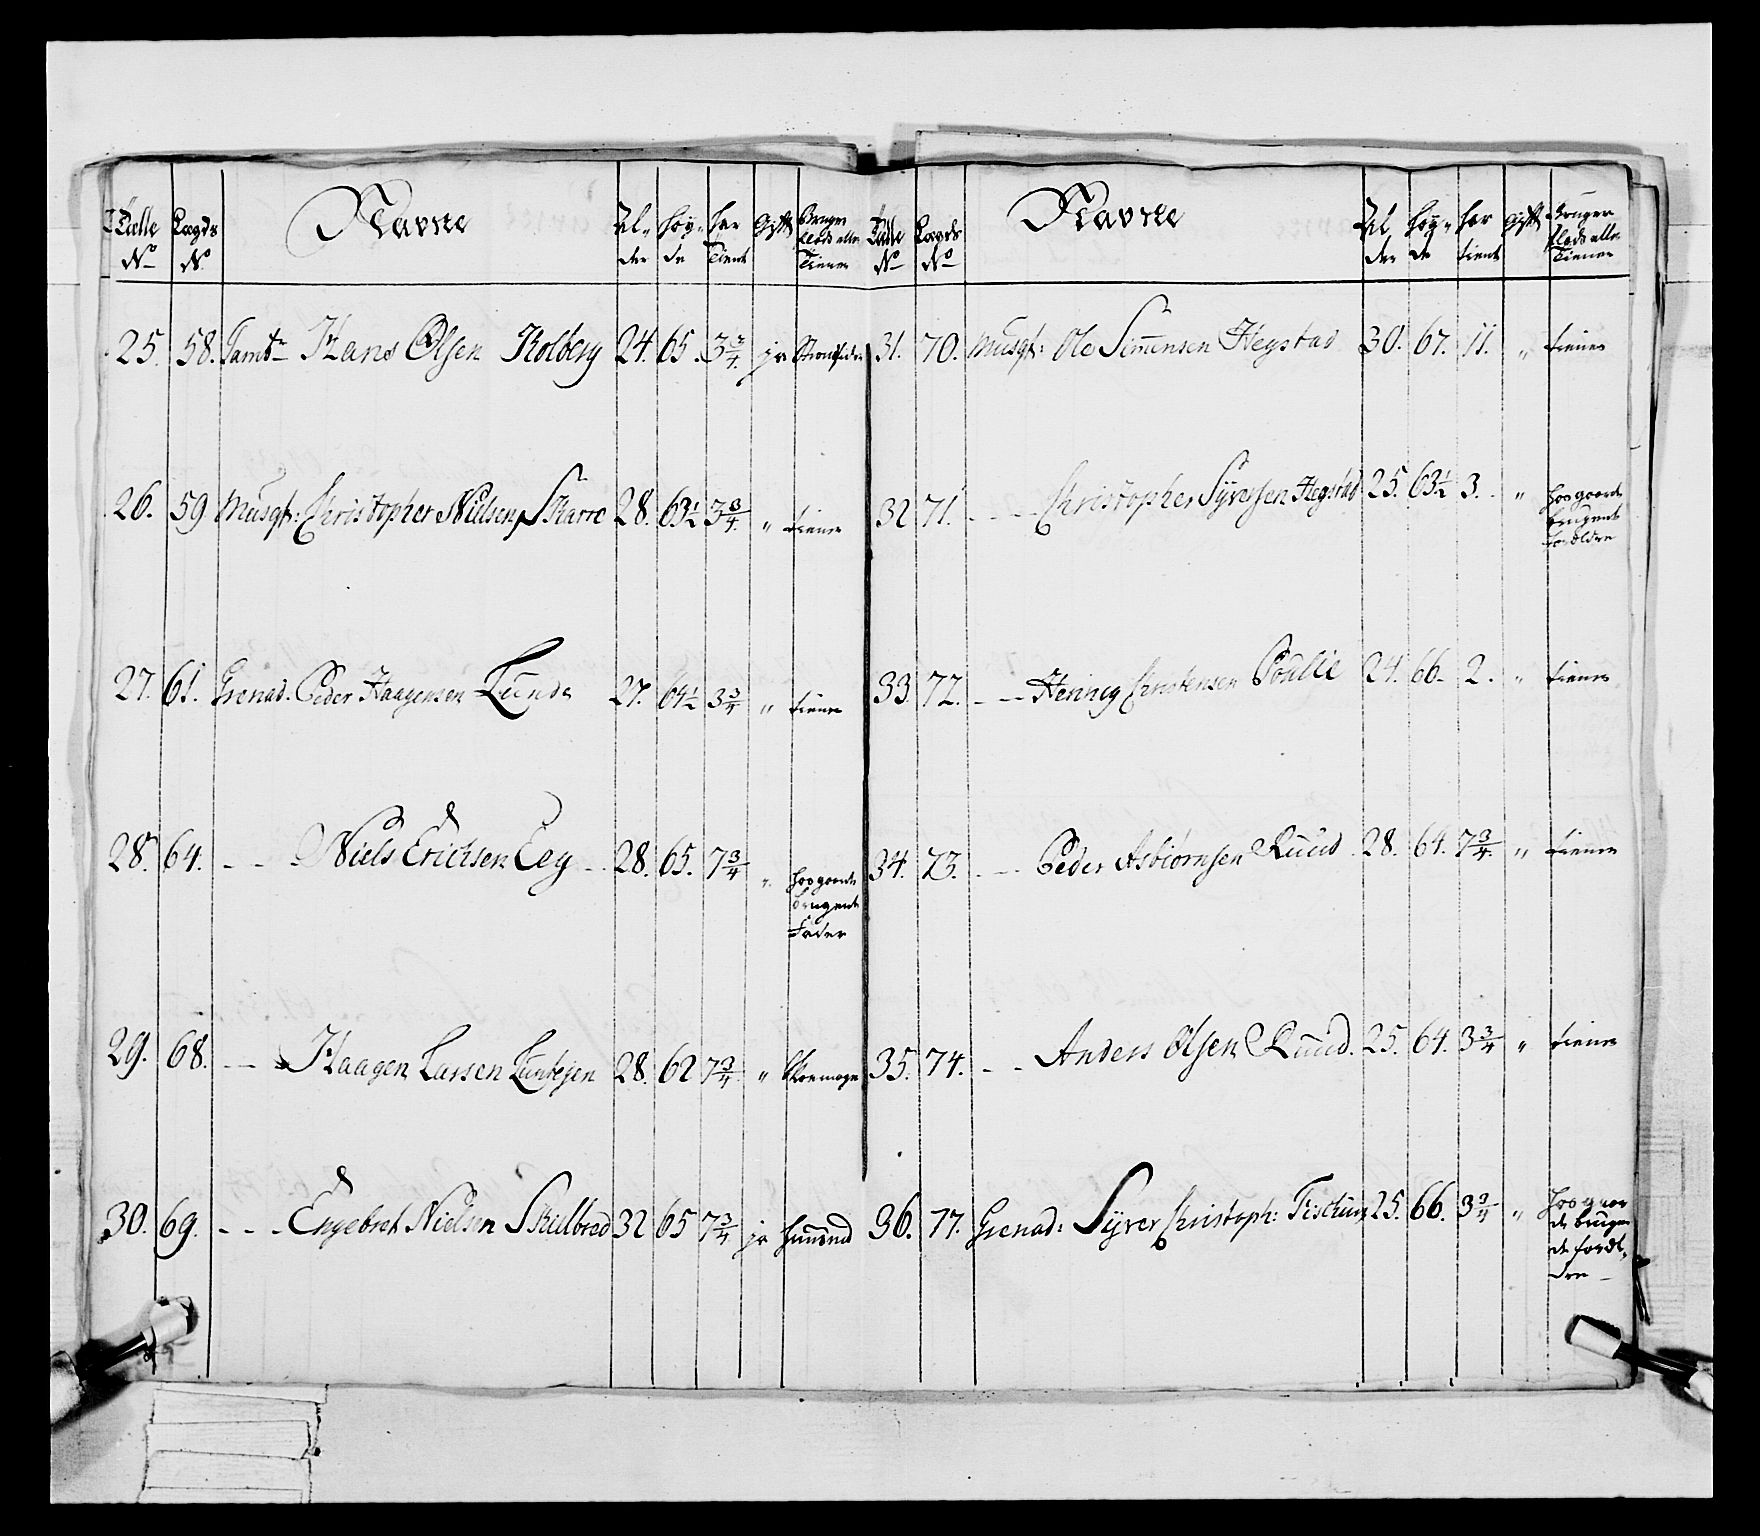 Tælle No Lægds No Navne Al- der Høy- de har Tient Gift Bruger Plads eller Tiener
25. 58. Tambr Hans Olsen Kolberg 24. 65. 3 3/4. ja
26. 59 Musqt: Christopher Nielsen Skarre 28. 63 1/2 3 3/4. " tiener
27. 61. Grenad. Peder Haagensen Lunde 27. 64 1/2 3 3/4 " tiener
28. 64. - - Niels Erichsen Eeg - 28. 65. 7 3/4 " hos gaards
brugende
Fader
29. 68. - - Haagen Larsen 28. 62 7 3/4 "
30. 69. - - - Engebret Nielsen Skulbred 32 65 7 3/4 ja huusmd
Tælle No Lægds No Navne Al der Høy- de har tient Gift Bruger Plads eller Tiener
31. 70. Musqt: Ole Simensen Hegstad 30. 67. 11. " tiener
32 71. - - - Christopher Syversen Hegstad 25. 63 1/2 3. " hos gaards
brugende
Forældre
33. 72. - - Henneg Christensen Poulie 24. 66. 2. " tiener
34. 73. - - Peder Asbiørnsen Ruud 28. 64. 7 3/4. " tiener
35. 74. - - Anders Olsen Ruud. 25. 64. 3 3/4 " tiener
36. 77. Grenad: Syver Christoph: 25. 66. 3 3/4 " hos gaar
ds bruge
de foræl-
dre -